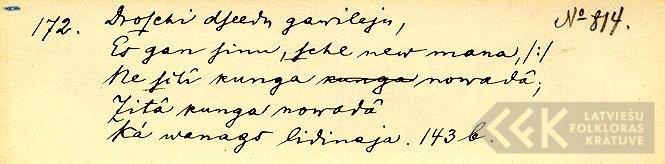 172. Droſchi dſeedu gawileju, № 814.
Es gan ſinu, ſche new mana, /:/
Ne ſilî kunga kunga nowadâ;
Zitâ kunga nowadâ
Kâ wanags lidinaja. 143 b.
LATVIEŠU
FOLKLORAS
KRĀTUVE